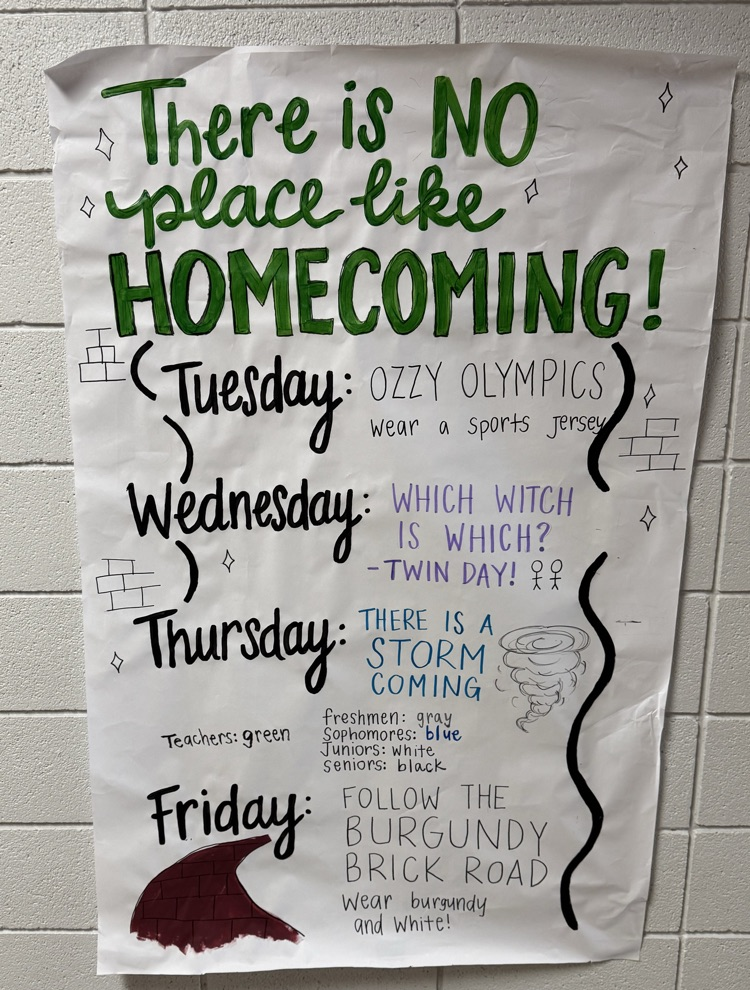 There is NO
place like
HOMECOMING!
Tuesday: OZZY OLYMPICS
wear a sports jersey
Wednesday: WHICH WITCH
IS WHICH?
-TWIN DAY!
Thursday: THERE IS A
STORM
COMING
Teachers: green
freshmen: gray
Sophomores: blue
Juniors: white
seniors: black
Friday: FOLLOW THE
BURGUNDY
BRICK ROAD
Wear burgundy
and white!